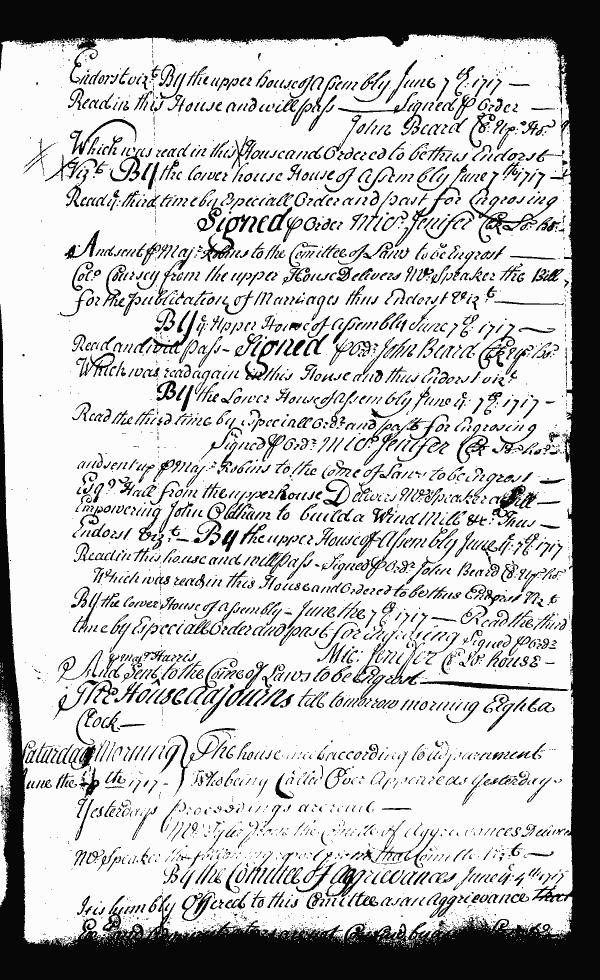 Endorst viz.t By the upper house of assembly June 7th. 1717 —
Read in this House and will pass — Signed P Order
John Beard Cl: Up: Ho:
Which was read in this House and Ordered to be thus Endorst —
Viz.t By the lower house House of assembly June 7th 1717 —
Read y.e third time by Especiall Order and past for Engrosing
Signed P Order Mic: Jenifer Clk Lo: ho:
And sent P Maj.r Robins to the Comittee of Laws to be Engrost —
Col.o Coursey from the upper House Delivers Mr. Speaker the Bill
for the publication of Marriages thus Endorst viz.t —
By y.e Upper House of assembly June 7th. 1717 —
Read and will pass — Signed P Ord.r John Beard Clk Up: ho:
Which was read again in this House and thus Endorst viz.t
By the Lower House of assembly June y.e 7th. 1717 —
Read the third time by Especiall Ord.r and past for Engrosing
Signed P Ord.r Mic: Jenifer Clk Lo: ho:
and sent up P Maj.r Robins to the Com.e of Laws to be ingrost —
Esq.r Hall from the upper house Delivers Mr. Speaker a Bill —
Empowering John Oldham to build a Wind Mill &c. Thus —
Endorst viz.t — By the upper House of Assembly June y.e 7th 1717
Read in this house and will pass — Signed P Ord.r John Beard Cl: Up: ho:
Which was read in this House and Ordered to be thus Endorst Viz.t
By the lower House of assembly — June the 7th 1717 — Read the third
time by Especiall Order and past for ingrosing Signed P Ord.r
Mic: Jenifer Cl Lo: house —
P Maj.r Harris
And Sent to the Com.e of Laws to be Engrost —
The House adjourns till tomorrow morning Eight a
Clock —
Saturday Morning The house meets according to adjournment
June the 8th 1717 — Who being Called Over Appeared as Yesterday
Yesterdays Proceedings are read —
Mr. Tyler from the Comitte of Aggrievances Delivers
Mr. Speaker the following from that Comitte Viz.t —
By the Comittee of Aggrievances June y.e 4th 1717
It is humbly Offered to this Comittee as an Aggrievance that